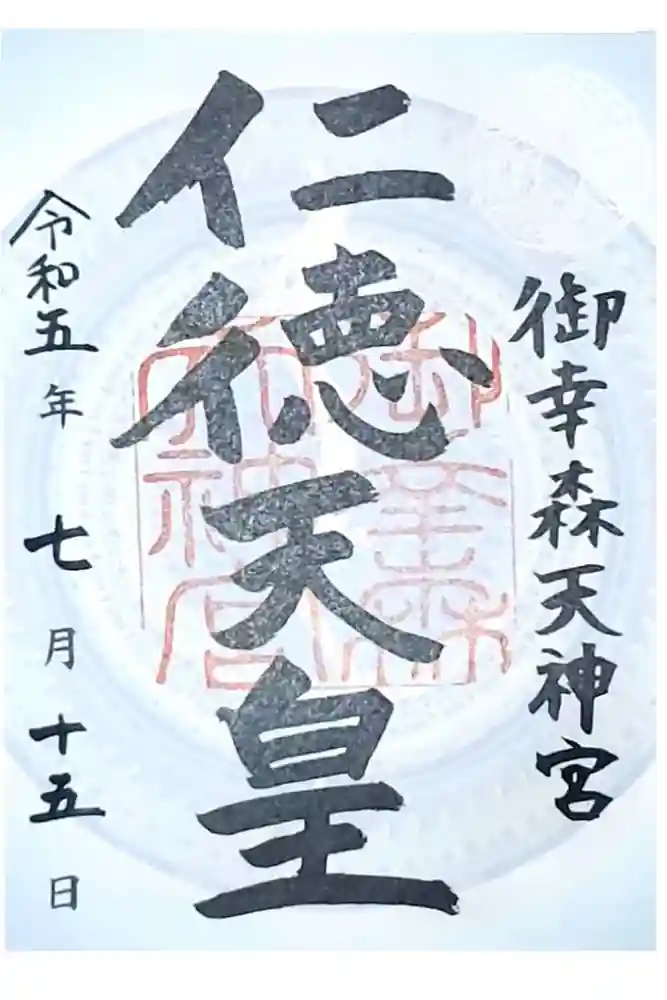 御幸森天神宮
仁徳天皇
令和五年七月十五日
御幸森天神宮